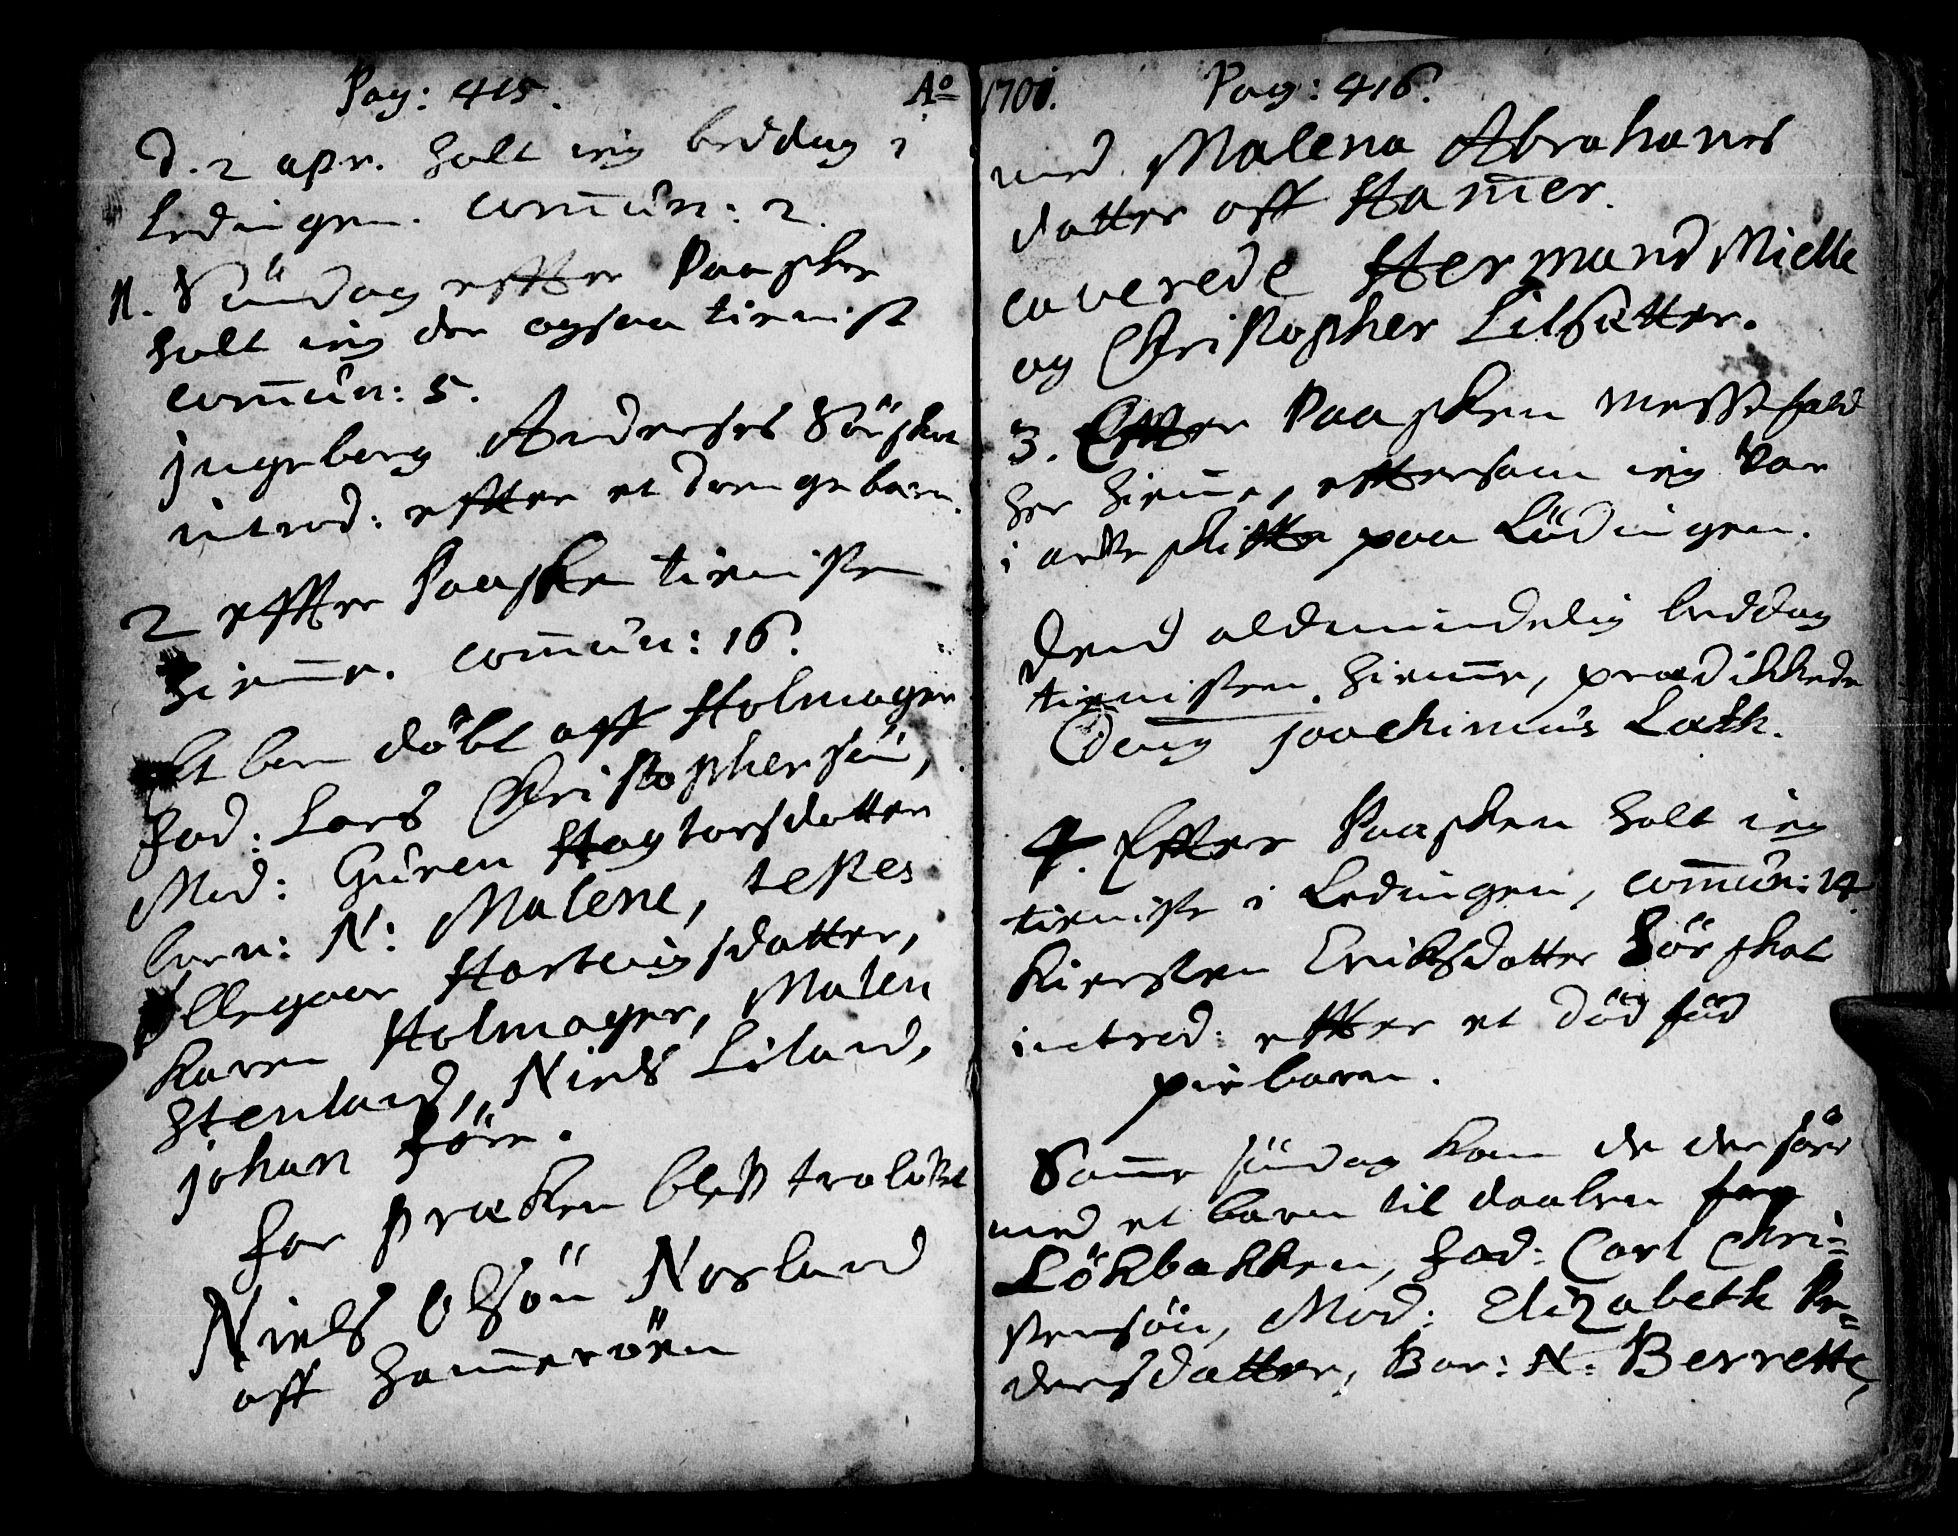 Pag: 415. Ao
d. 2 apr. holt ieg beddag i
Ledingen. com̄ún: 2.
N. Søndag effter Paaske
holt ieg der ogsaa tieniste
com̄ún: 5.
Jngeborg Anderses Sørskot
introd: effter et drengebarn.
2 effter Paasken tienisten
hiem̄e. com̄ún: 16.
Et barn döbt aff Holmager
Fad: Lars Christophersön,
Mod: Guren Hagtorsdatter
barn: N: Malene, testes
Ellegaar Hartvigsdatter,
Karen Holmager, Malen
Stenland, Niels Liland,
Johan Före.
for præken bleff trolofvet
Niels Olsön Norland
aff Ham̄eröen
1701. Pag: 416.
med Malena Abrahams
datter aff Ham̄er.
caverede Hermand Mielle
og Christopher Lilsætter.
3. Effter Paasken messefald
her hiem̄e, efftersom ieg var
i skiffte paa Lödingen.
Dend aldmindelig beddag
tienisten hiem̄e, prædikkede
Joachimus Lath.
4. Effter Paasken holt ieg
tieniste i Ledingen, com̄ún: 14.
Kiersten Eriksdatter Sörskot
introd: effter et död föd
piebarn.
Sam̄e søndag kom de der
med et barn til daaben fra
Lökbakken, Fad: Carl Chri=
stensön, Mod: Elizabeth Pe=
dersdatter, Bar: N: Berrette,